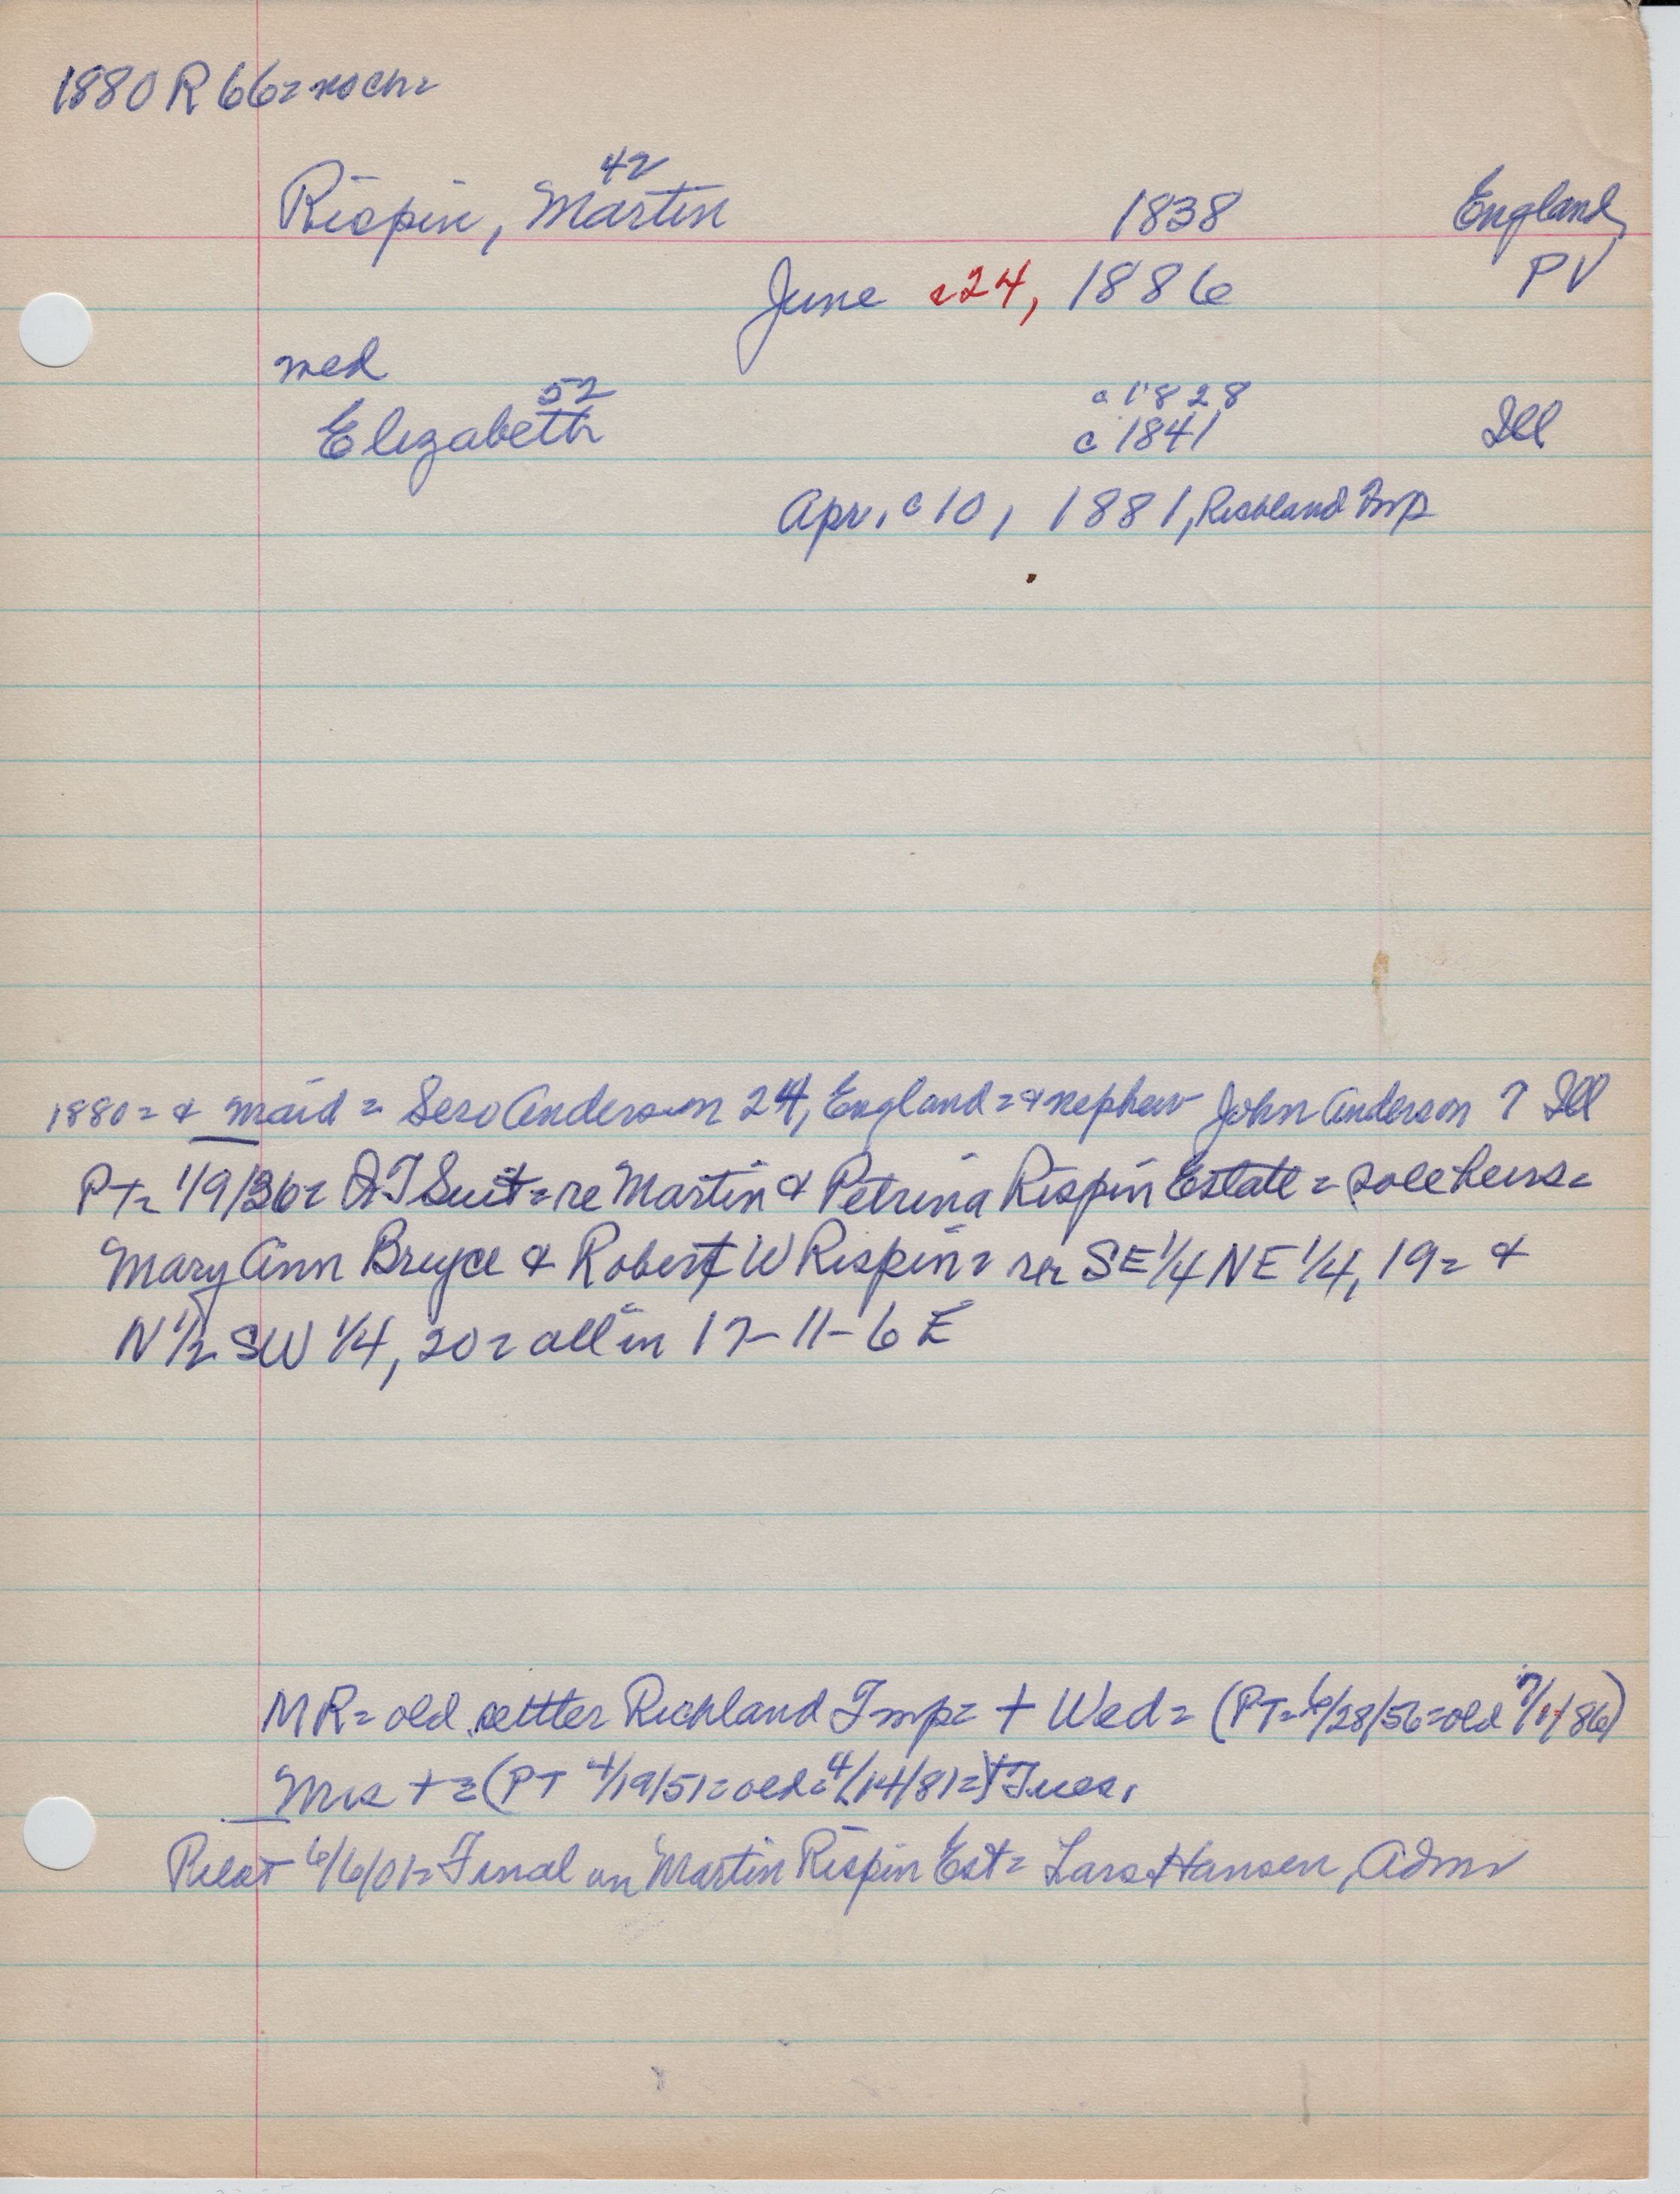 1880 R 66 = no ch =
42
Rispin, Martin 1838 England
June c24, 1886 PV
med
52 c 1828
Elizabeth c 1841 Ill
Apr. c 10, 1881, Richland Twp
1880 = & maid = Sero Anderson 24, England = & nephew John Anderson 7 Ill
PT = 1/9/36 = QT Suit = re Martin & Petrina Rispin Estate = sole heirs =
Mary Ann Bryce & Robert W Rispin = SE 1/4 NE 1/4, 19 = &
N 1/2 SW 1/4, 20 = all in 17-11-6 E
MR = old settler Richland Twp = + Wed = (PT = 6/28/56 = old 7/1/86)
Mrs + = (PT 4/19/51 = old = 4/14/81 =) + Tues.
Pilot 6/6/01 = Final on Martin Rispin Est = Lars Hansen, Adm